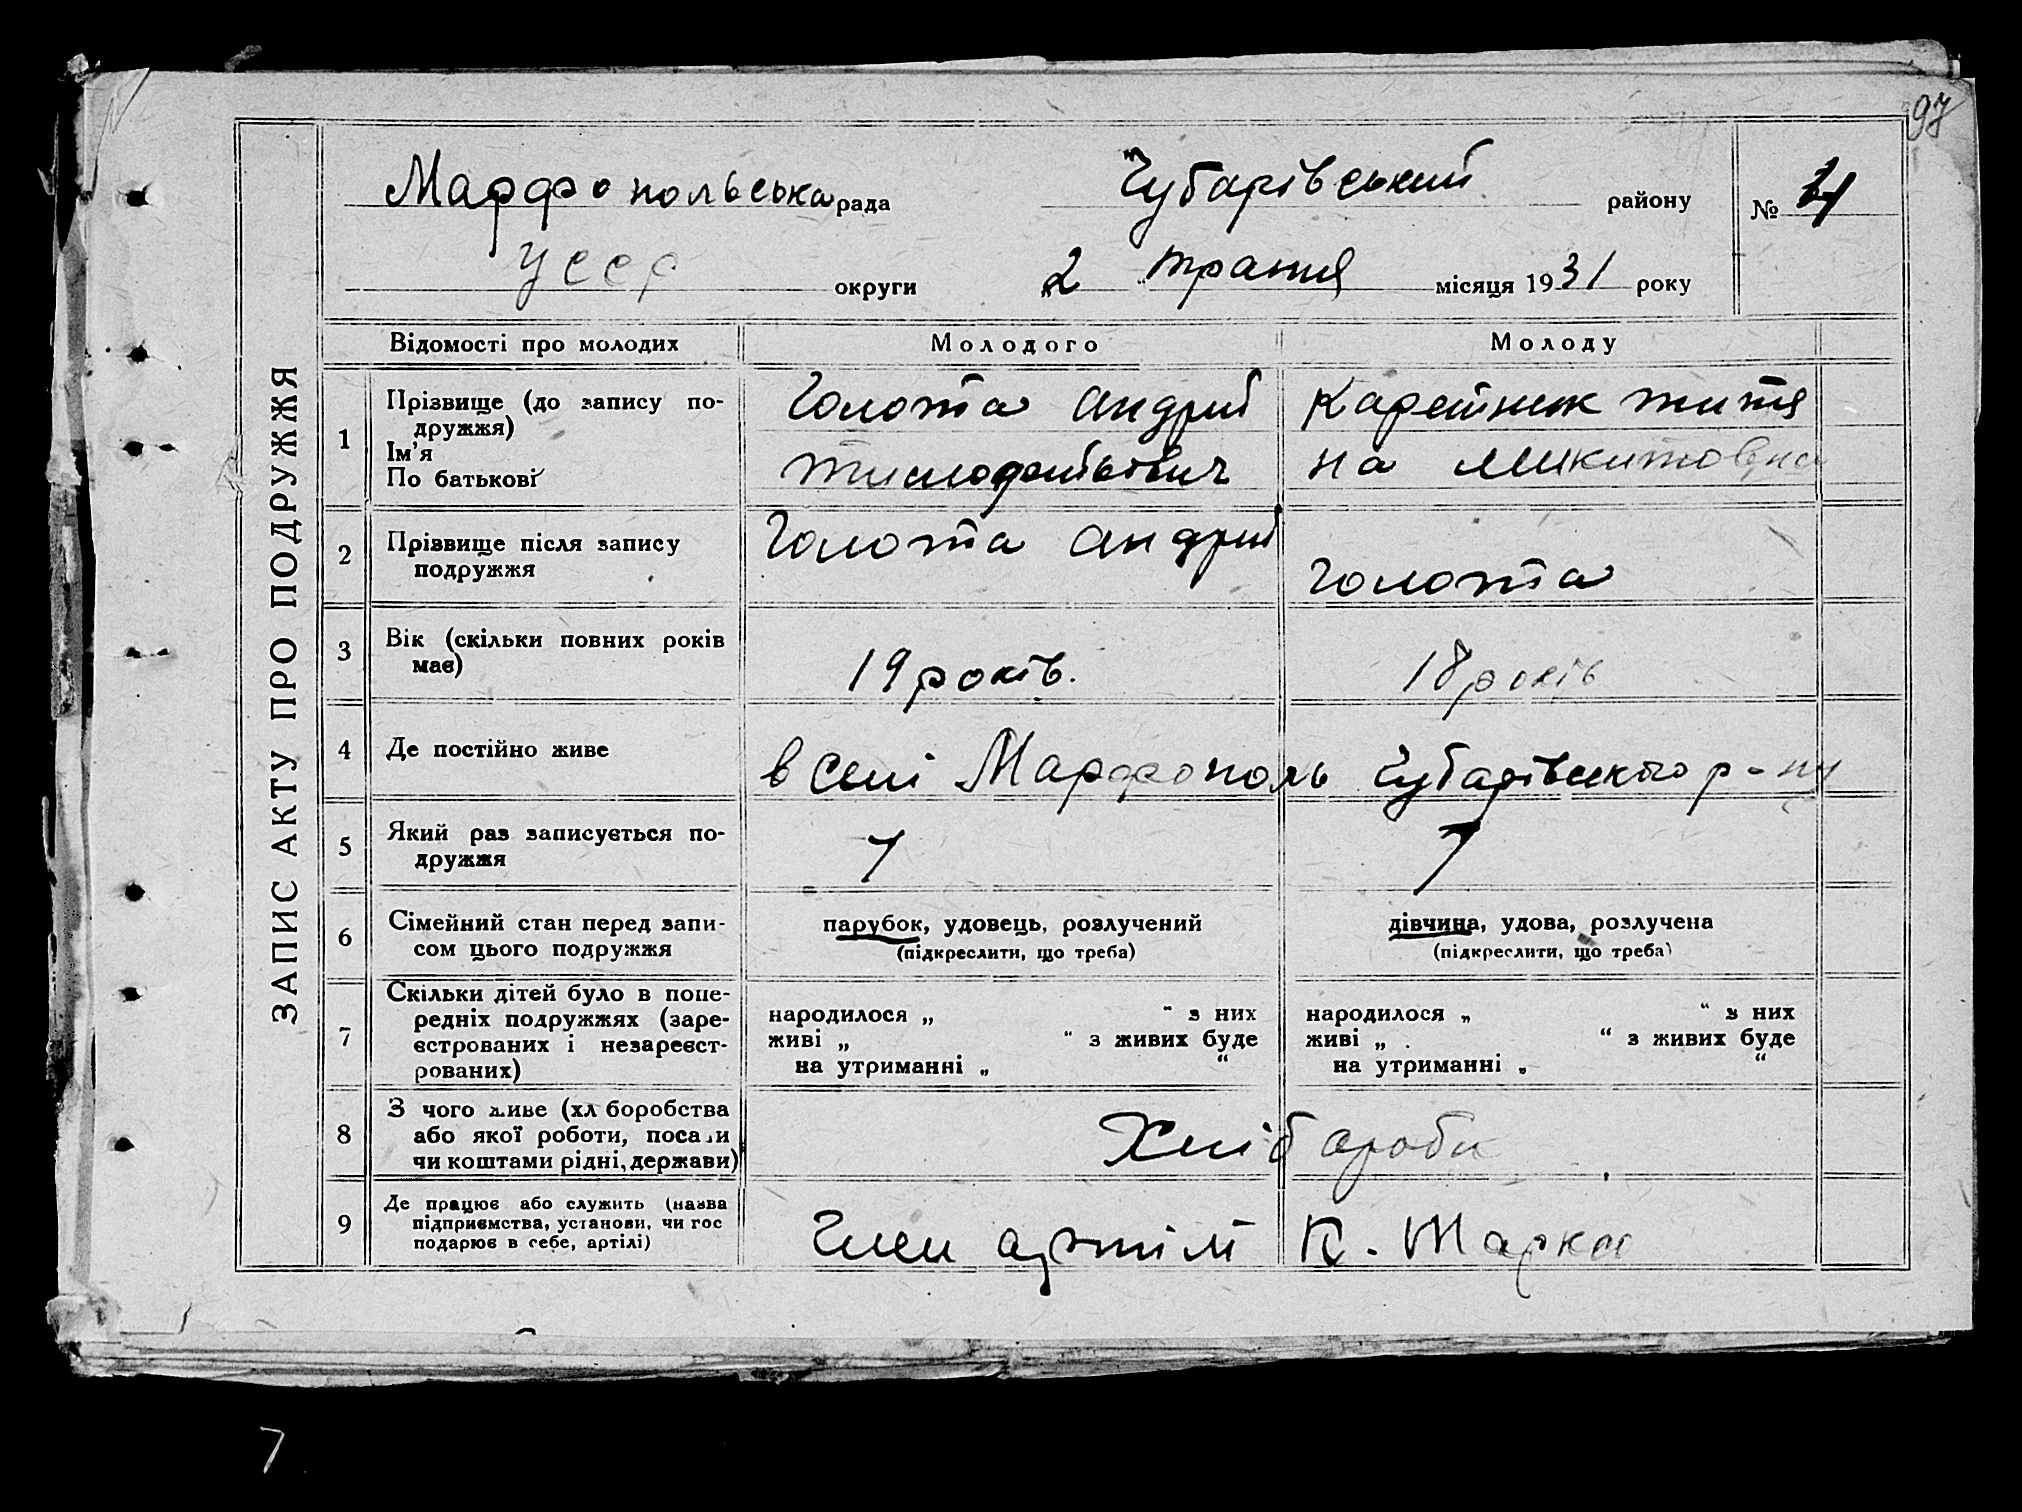 97
Марфопольська рада Чубарівський району №
УССР округи „2 “ траня місяця 1931 року
ЗАПИС АКТУ ПРО ПОДРУЖЖЯ
Відомості про молодих Молодого Молоду
1 Прізвище (до запису по-
дружжя)
Ім'я
По батькові
Голота Андрий
Тимофейович
Каретник
на Микитовна
2 Прізвище після запису
подружжя
Голота Андрий
Голота
3 Вік (скільки повних років
має)
19 років.
18 років
4 Де постійно живе
в селі Марфополь Чубарівского р-ну
5 Який раз записується по-
дружжя
1
1
6 Сімейний стан перед запи-
сом цього подружжя
парубок, удовець, розлучений
(підкреслити, що треба)
дівчина, удова, розлучена
(підкреслити, що треба)
7 Скільки дітей було в попе-
редніх подружжях (заре-
єстрованих і незареєст-
рованих)
народилося „ “ з них
живі „ “ з живих буде
на утриманні „ “
народилося „ “ з них
живі „ “ з живих буде
на утриманні „ “
8 З чого живе (хл боробства
або якої роботи, посади
чи коштами рідні, держави)
Хлібароби
9 Де працює або служить (назва
підприємства, установи, чи гос
подарює в себе, артілі)
Член артіли К. Маркса
7